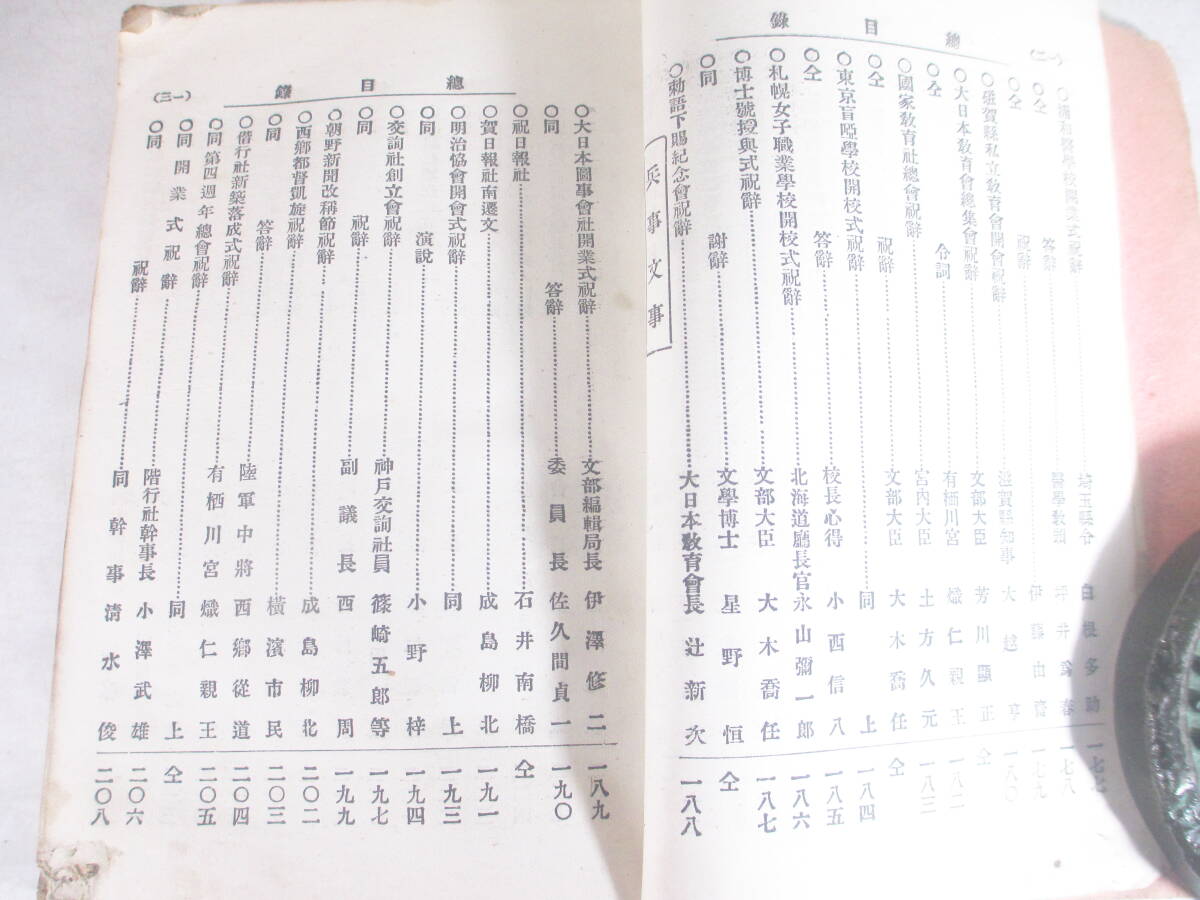 總目錄
(一二)
○浦和醫學校開業式祝辭 埼玉縣令 白根多助 一七七
○仝 答辭 醫學敎頭 坪井爲春 一七八
○仝 祝辭 伊藤由 一七九
○滋賀縣私立敎育會開會祝辭 滋賀縣知事 大越亨 一八〇
○大日本敎育會總集會祝辭 文部大臣 芳川顯正 仝
○仝 令詞 有栖川宮 熾仁親王 一八二
○國家敎育社總會祝辭 宮內大臣 土方久元 一八三
○仝 祝辭 文部大臣 大木喬任 仝
○東京盲啞學校開校式祝辭 同上 一八四
○仝 答辭 校長心得 小西信八 一八五
○札幌女子職業學校開校式祝辭 北海道廳長官 永山彌一郎 一八六
○博士號授與式祝辭 文部大臣 大木喬任 一八七
○同 謝辭 文學博士 星野恒 仝
○勅語下賜紀念會祝辭 大日本敎育會長 辻新次 一八八
兵事文事
總目錄
(一三)
○大日本圖事會社開業式祝辭 文部編輯局長 伊澤修二 一八九
○同 答辭 委員長 佐久間貞一 一九〇
○祝日報社 石井南橋 仝
○賀日報社南遷文 成島柳北 一九一
○明治協會開會式祝辭 同上 一九三
○同 演說 小野梓 一九四
○交詢社創立會祝辭 神戶交詢社員 篠崎五郎等 一九七
○同 祝辭 副議長 西周 一九九
○朝野新聞改稱節祝辭 成島柳北 二〇二
○西鄕都督凱旋祝辭 橫濱市民 二〇三
○同 答辭 陸軍中將 西鄕從道 二〇四
○偕行社新築落成式祝辭 有栖川宮 熾仁親王 二〇五
○同第四週年總會祝辭 同上 仝
○同開業式祝辭 階行社幹事長 小澤武雄 二〇六
○同 祝辭 同幹事 淸水俊 二〇八